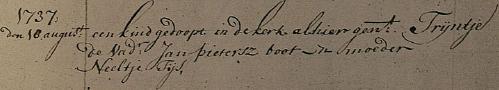 1737.
den 18 august. een kind gedoopt in de kerk alhier gent. Trijntje
de Vad.r Jan pietersz boot en moeder
Neeltje Tijs.